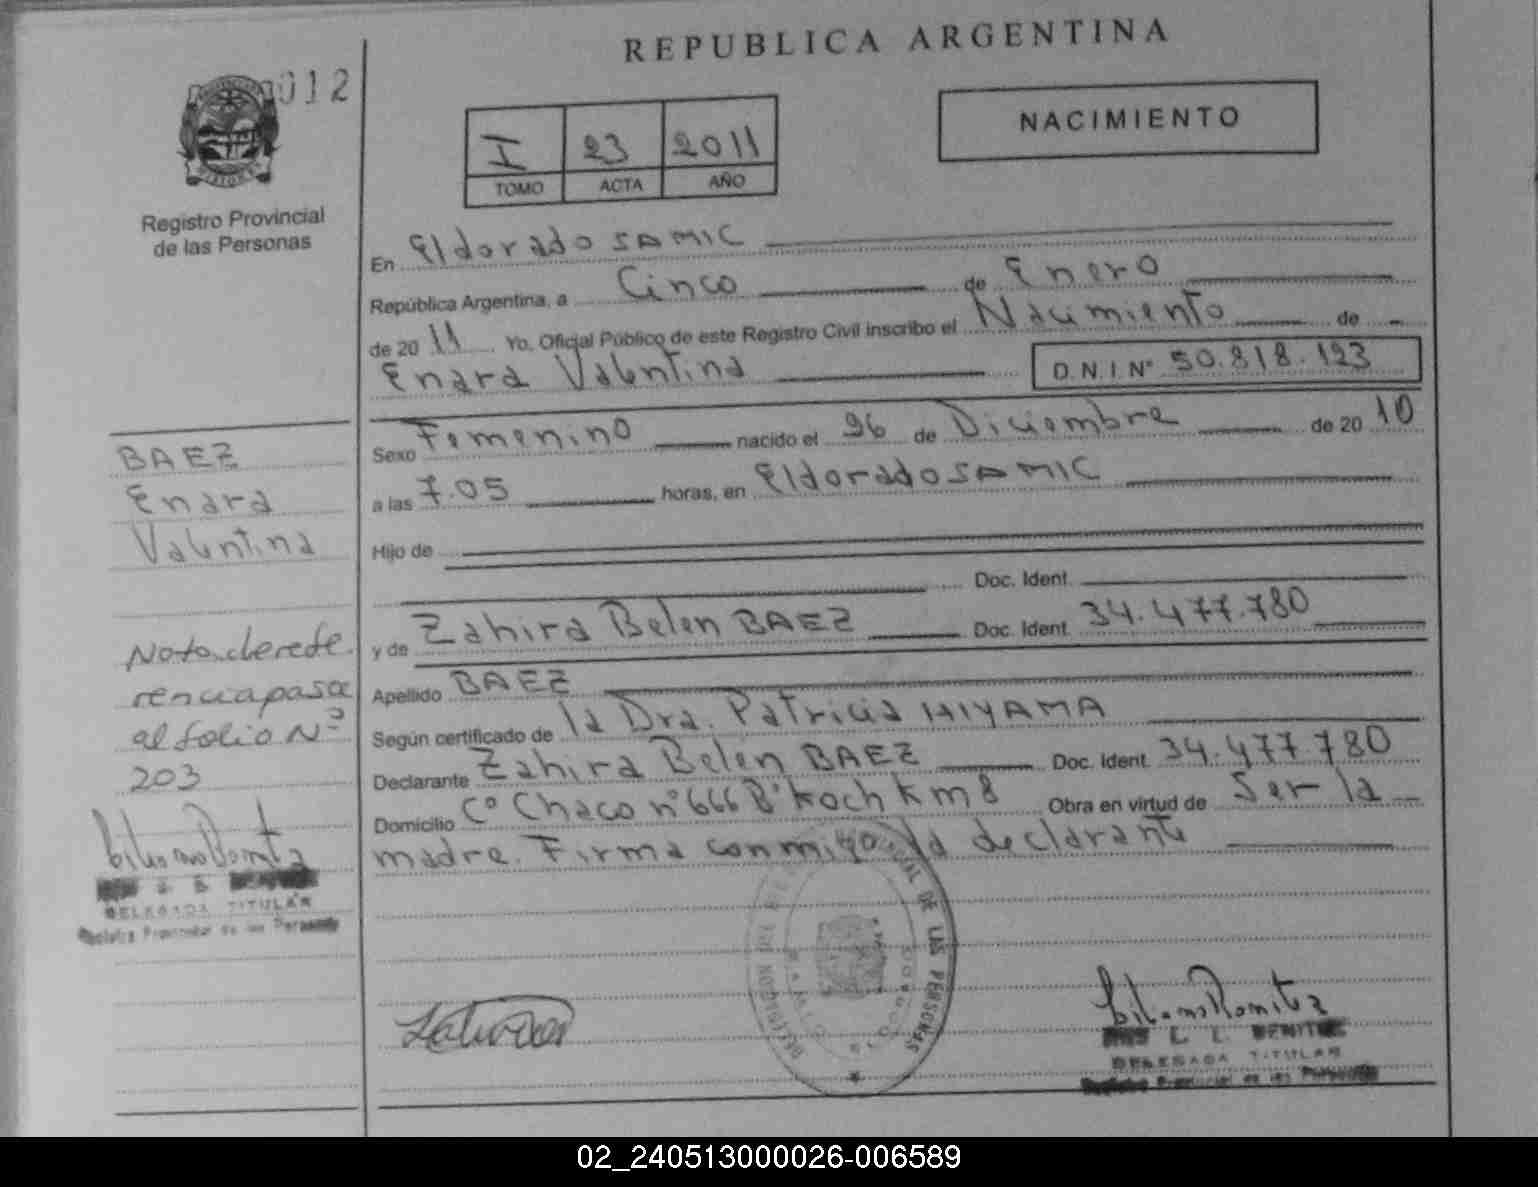 REPUBLICA ARGENTINA
012
I 23 2011
TOMO ACTA AÑO
NACIMIENTO
Registro Provincial
de las Personas
En Eldorado SAMIC
República Argentina, a Cinco de Enero
de 20 11 Yo, Oficial Público de este Registro Civil inscribo el Nacimiento de
Enara Valentina D.N.I. Nº 50.818.123
Sexo Femenino nacido el 26 de Diciembre de 20 10
a las 7.05 horas, en Eldorado SAMIC
Hijo de
Doc. Ident.
y de Zahira Belen BAEZ Doc. Ident. 34.477.780
Apellido BAEZ
Según certificado de la Dra. Patricia HIYAMA
Declarante Zahira Belen BAEZ Doc. Ident. 34.477.780
Domicilio Cº Chaco nº 666 Bº Koch Km 8 Obra en virtud de Ser la
madre. Firma conmigo la declarante
BAEZ
Enara
Valentina
Nota de refe
rencia pasa
al folio Nº
203
DELEGADA TITULAR
Registro Provincial de las Personas
DE LAS PERSONAS
L. BENITEZ
DELEGADA TITULAR
Registro Provincial de las Personas
02_240513000026-006589